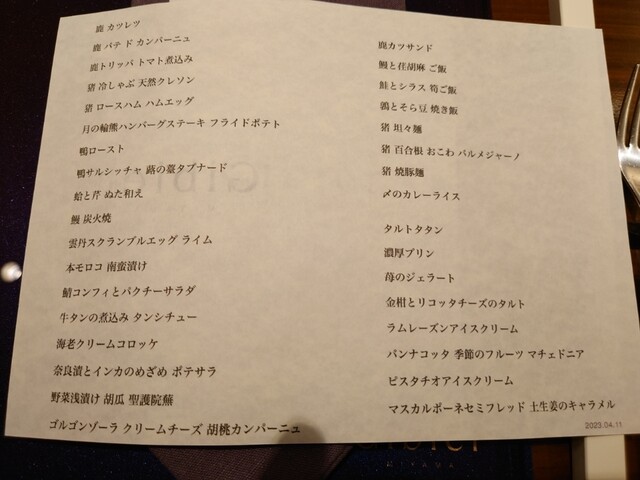 鹿 カツレツ
鹿 パテ ド カンパーニュ
鹿トリッパ トマト煮込み
猪 冷しゃぶ 天然クレソン
猪 ロースハム ハムエッグ
月の輪熊ハンバーグステーキ フライドポテト
鴨ロースト
鴨サルシッチャ 蕗の薹タブナード
蛤と芹 ぬた和え
鰻 炭火焼
雲丹スクランブルエッグ ライム
本モロコ 南蛮漬け
鯖コンフィとパクチーサラダ
牛タンの煮込み タンシチュー
海老クリームコロッケ
奈良漬とインカのめざめ ポテサラ
野菜浅漬け 胡瓜 聖護院蕪
ゴルゴンゾーラ クリームチーズ 胡桃カンパーニュ
鹿カツサンド
鰻と荏胡麻 ご飯
鮭とシラス 筍ご飯
鶉とそら豆 焼き飯
猪 坦々麺
猪 百合根 おこわ パルメジャーノ
猪 焼豚麺
〆のカレーライス
タルトタタン
濃厚プリン
苺のジェラート
金柑とリコッタチーズのタルト
ラムレーズンアイスクリーム
パンナコッタ 季節のフルーツ マチェドニア
ピスタチオアイスクリーム
マスカルポーネセミフレッド 土生姜のキャラメル
2023.04.11